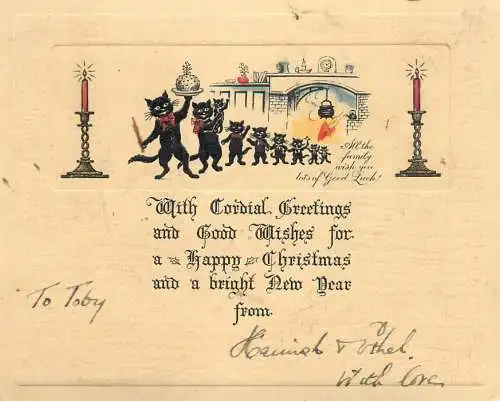 All the
family
wish you
lots of "Good Luck!"
With Cordial Greetings
and Good Wishes for
a Happy Christmas
and a bright New Year
from
To Toby
Hamish & Ethel.
With love